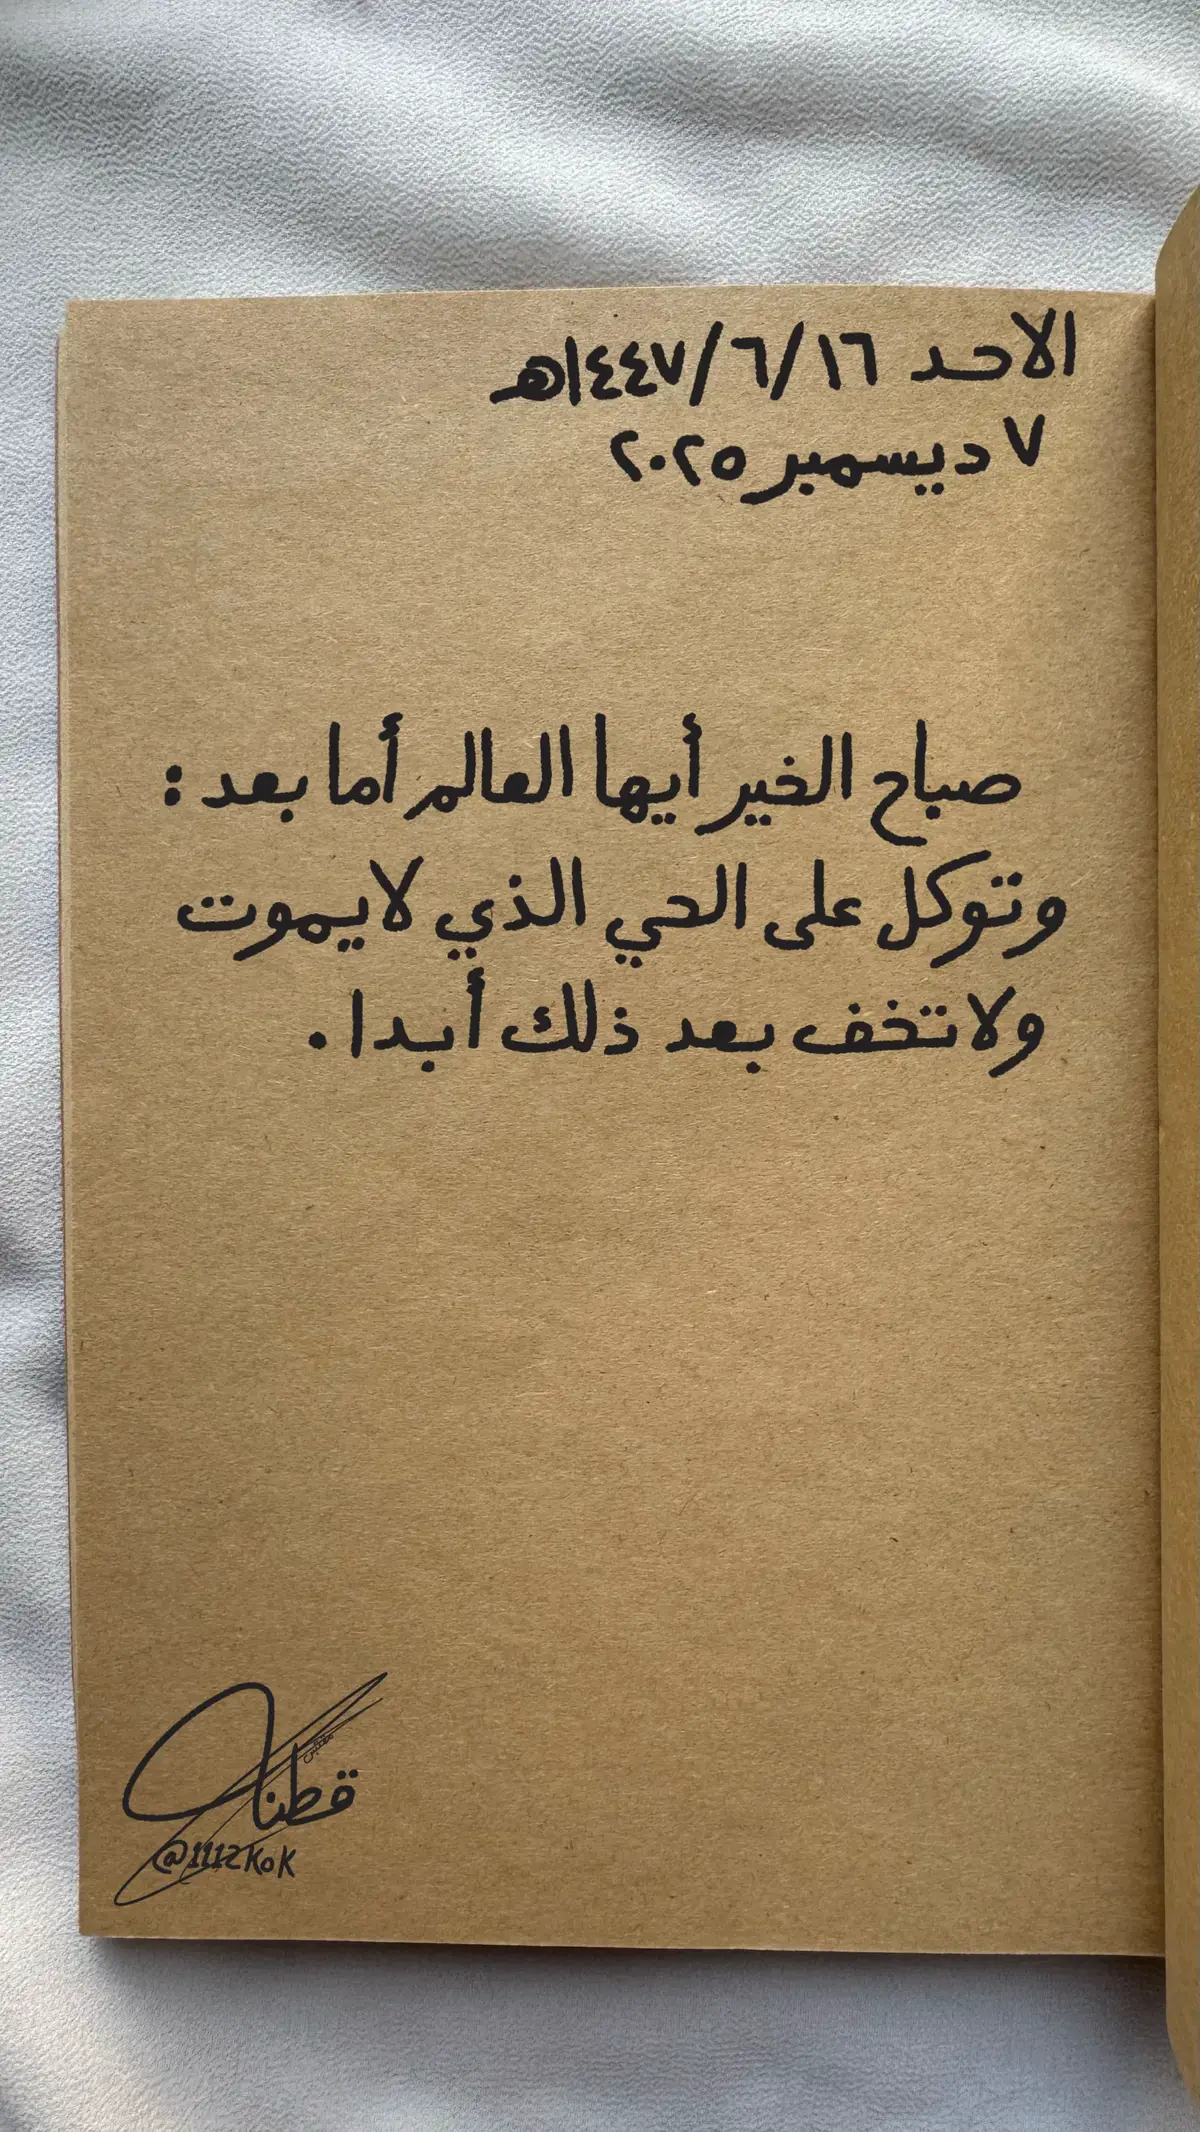 الاحد ١٦/٦/١٤٤٧هـ
٧ ديسمبر ٢٠٢٥
صباح الخير أيها العالم أما بعد :
وتوكل على الحي الذي لايموت
ولا تخف بعد ذلك أبدا .
@1112KoK